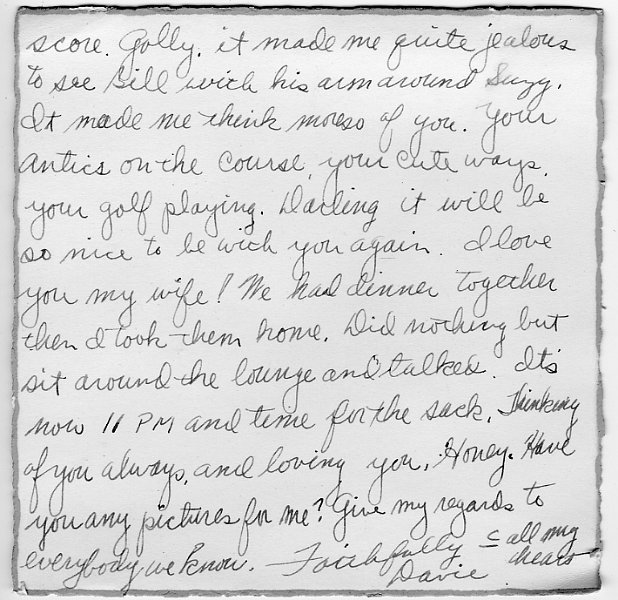 score. Golly, it made me quite jealous
to see Bill with his arm around Suzy.
It made me think moreso of you. Your
antics on the course, your cute ways,
your golf playing. Darling it will be
so nice to be with you again. I love
you my wife! We had dinner together
then I took them home. Did nothing but
sit around the lounge and talked. It's
now 11 PM and time for the sack. Thinking
of you always, and loving you, Honey. Have
you any pictures for me? Give my regards to
everybody we know. Faithfully c all my
Davie heart